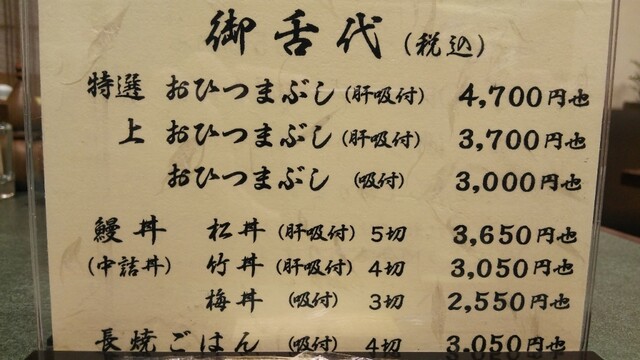 御舌代(税込)
特選 おひつまぶし(肝吸付) 4,700円也
上 おひつまぶし(肝吸付) 3,700円也
おひつまぶし (吸付) 3,000円也
鰻丼 松丼(肝吸付) 5切 3,650円也
(中詰丼) 竹丼(肝吸付) 4切 3,050円也
梅丼 (吸付) 3切 2,550円也
長焼ごはん (吸付) 4切 3,050円也